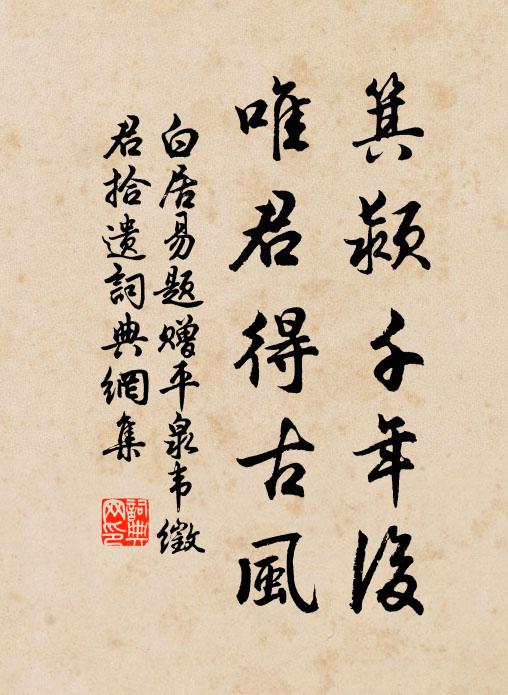 箕潁千年後
唯君得古風
白居易題贈平泉韦徵
君拾遺詞典網集
詞典
网印